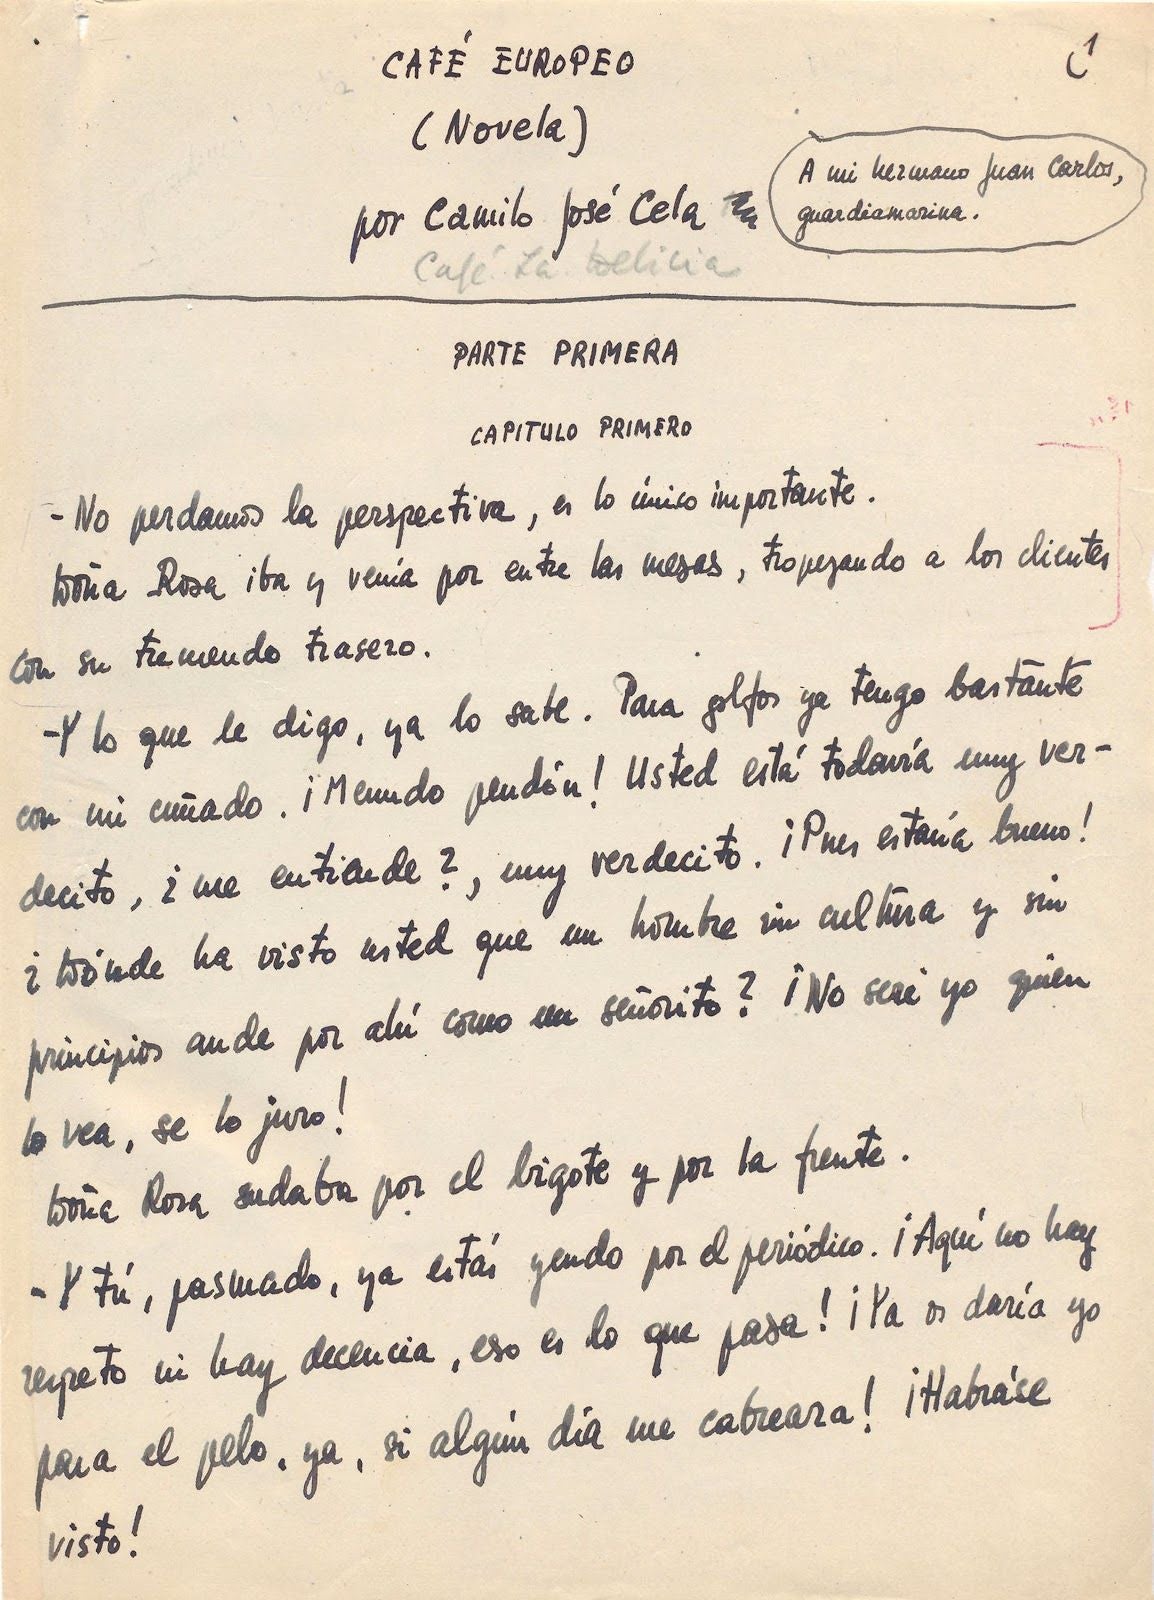 1
CAFÉ EUROPEO
(Novela)
A mi hermano Juan Carlos,
guardiamarina.
por Camilo José Cela
Café La Delicia
PARTE PRIMERA
CAPITULO PRIMERO
-No perdamos la perspectiva, es lo único importante.
Doña Rosa iba y venía por entre las mesas, tropezando a los clientes
con su tremendo trasero.
-Y lo que le digo, ya lo sabe. Para golfos ya tengo bastante
con mi cuñado. ¡Menudo pendón! Usted está todavía muy ver-
decito, ¿me entiende?, muy verdecito. ¡Pues estaría bueno!
¿Dónde ha visto usted que un hombre sin cultura y sin
principios ande por ahí como un señorito? ¡No seré yo quien
lo vea, se lo juro!
Doña Rosa sudaba por el bigote y por la frente.
-Y tú, pasmado, ya estás yendo por el periódico. ¡Aquí no hay
respeto ni hay decencia, eso es lo que pasa! ¡Ya os daría yo
para el pelo, ya, si algún día me cabreara! ¡Habráse
visto!